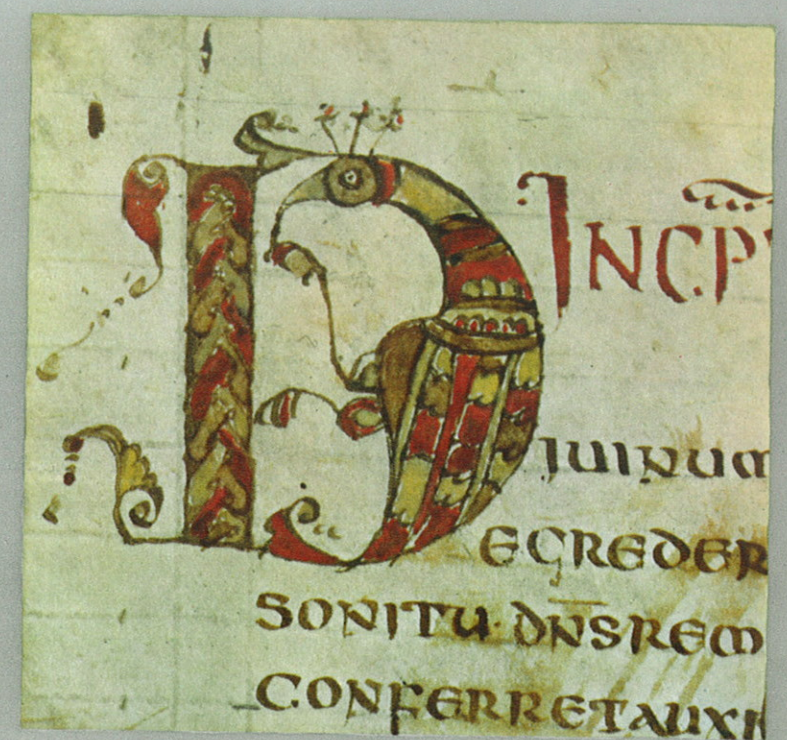 INCP
DIUINUM
EGREDER
SONITU · DN̄S REM
CONFERRET AUXI